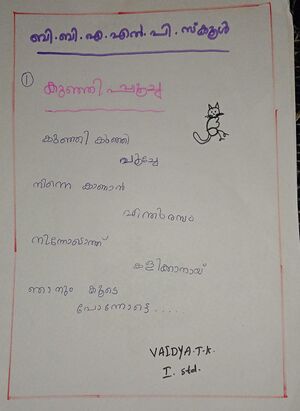 ബി.ബി.എ.എൻ.പി.സ്കൂൾ
①
കുഞ്ഞി പൂച്ച
കുഞ്ഞി കുഞ്ഞി
പൂച്ചേ
നിന്നെ കാണാൻ
എന്തുരസം
നിന്നോടൊത്ത്
കളിക്കാനായ്
ഞാനും കൂടെ
പോന്നോട്ടെ.....
VAIDYA.T.K.
I. std.